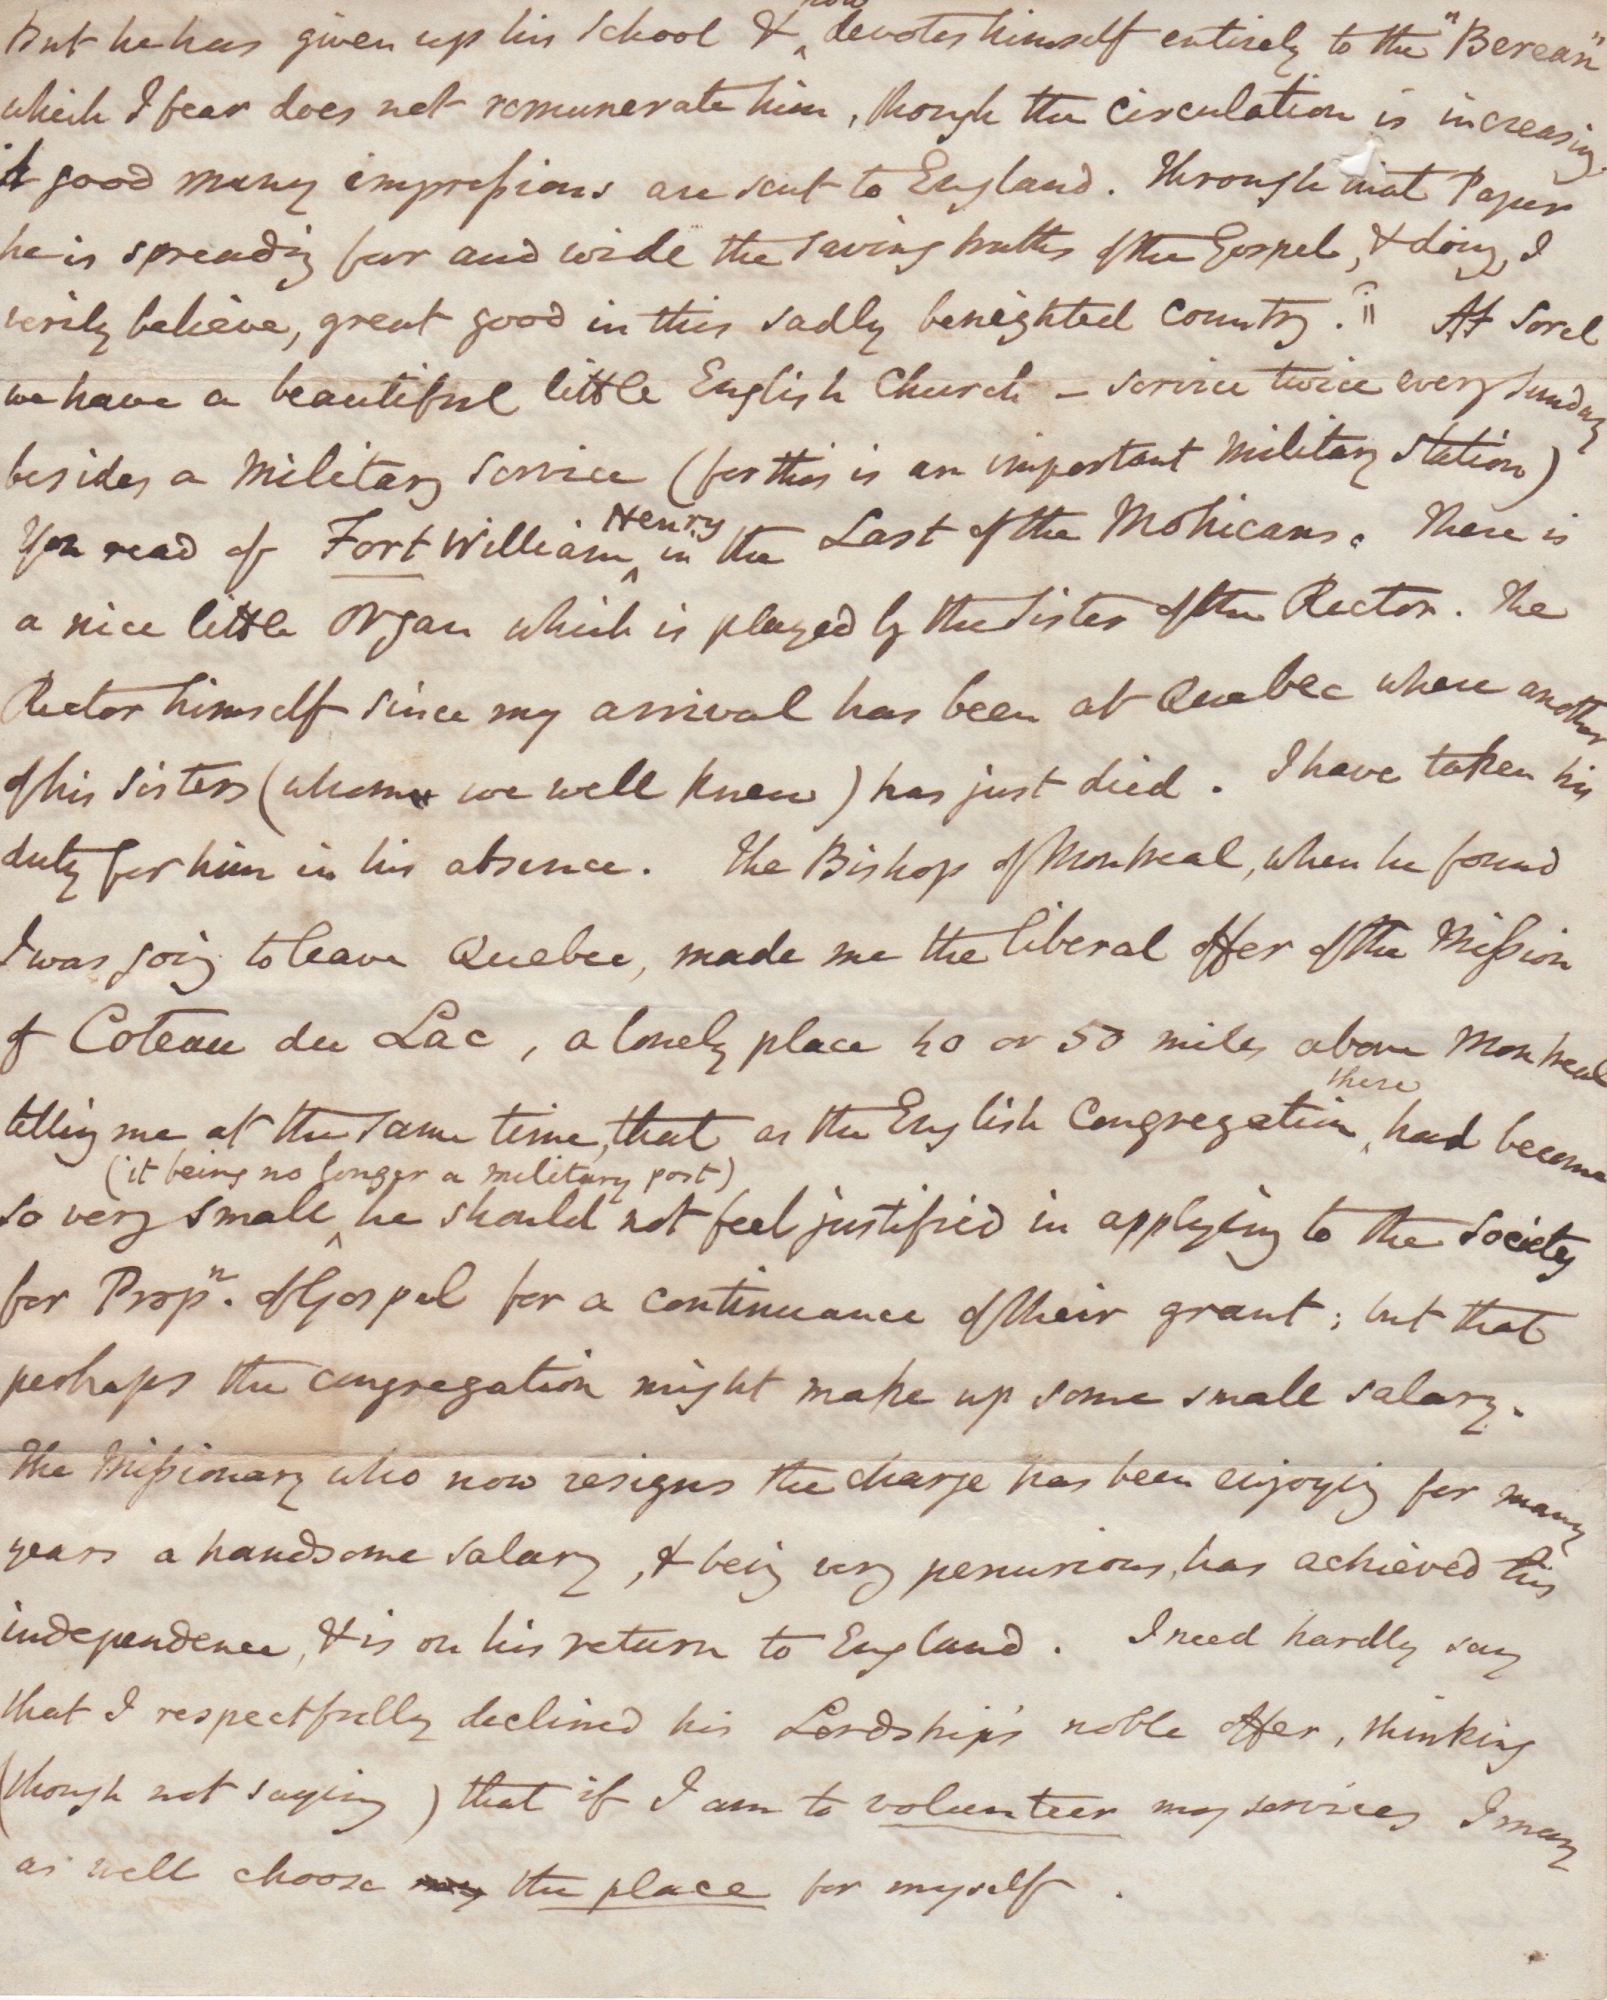 But he has given up his School & now devotes himself entirely to the "Berean"
which I fear does not remunerate him, though the circulation is increasing.
A good many impressions are sent to England. Through that Paper
he is spreading far and wide the saving truths of the Gospel, & doing, I
verily believe, great good in this sadly benighted country. At Sorel
we have a beautiful little English Church - service twice every Sunday
besides a Military Service (for this is an important Military Station)
You read of Fort William Henry in the Last of the Mohicans. There is
a nice little organ which is played by the Sister of the Rector. The
Rector himself since my arrival has been at Quebec where another
of his sisters (whom we well knew) has just died. I have taken his
duty for him in his absence. The Bishop of Montreal, when he found
I was going to leave Quebec, made me the liberal offer of the Mission
of Coteau du Lac, a lonely place 40 or 50 miles above Montreal
telling me at the same time, that as the English Congregation there had become
so very small (it being no longer a military post) he should not feel justified in applying to the Society
for Propn. of Gospel for a continuance of their grant; but that
perhaps the congregation might make up some small salary.
The Missionary who now resigns the charge has been enjoying for many
years a handsome salary, & being very penurious, has achieved his
independence, & is on his return to England. I need hardly say
that I respectfully declined his Lordship's noble offer, thinking
(though not saying) that if I am to volunteer my services I may
as well choose my the place for myself.